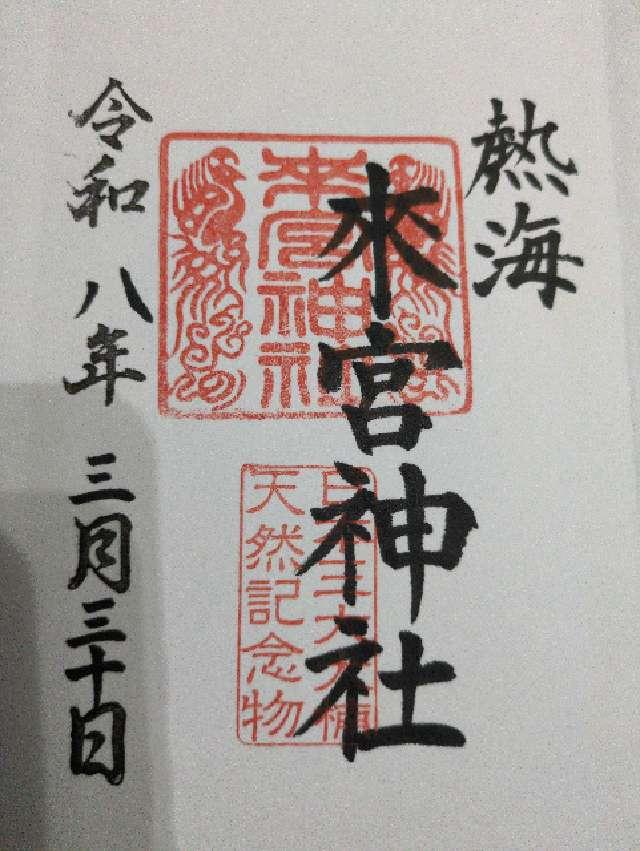 熱海
來宮神社
來宮神社
天然記念物
令和八年三月三十日